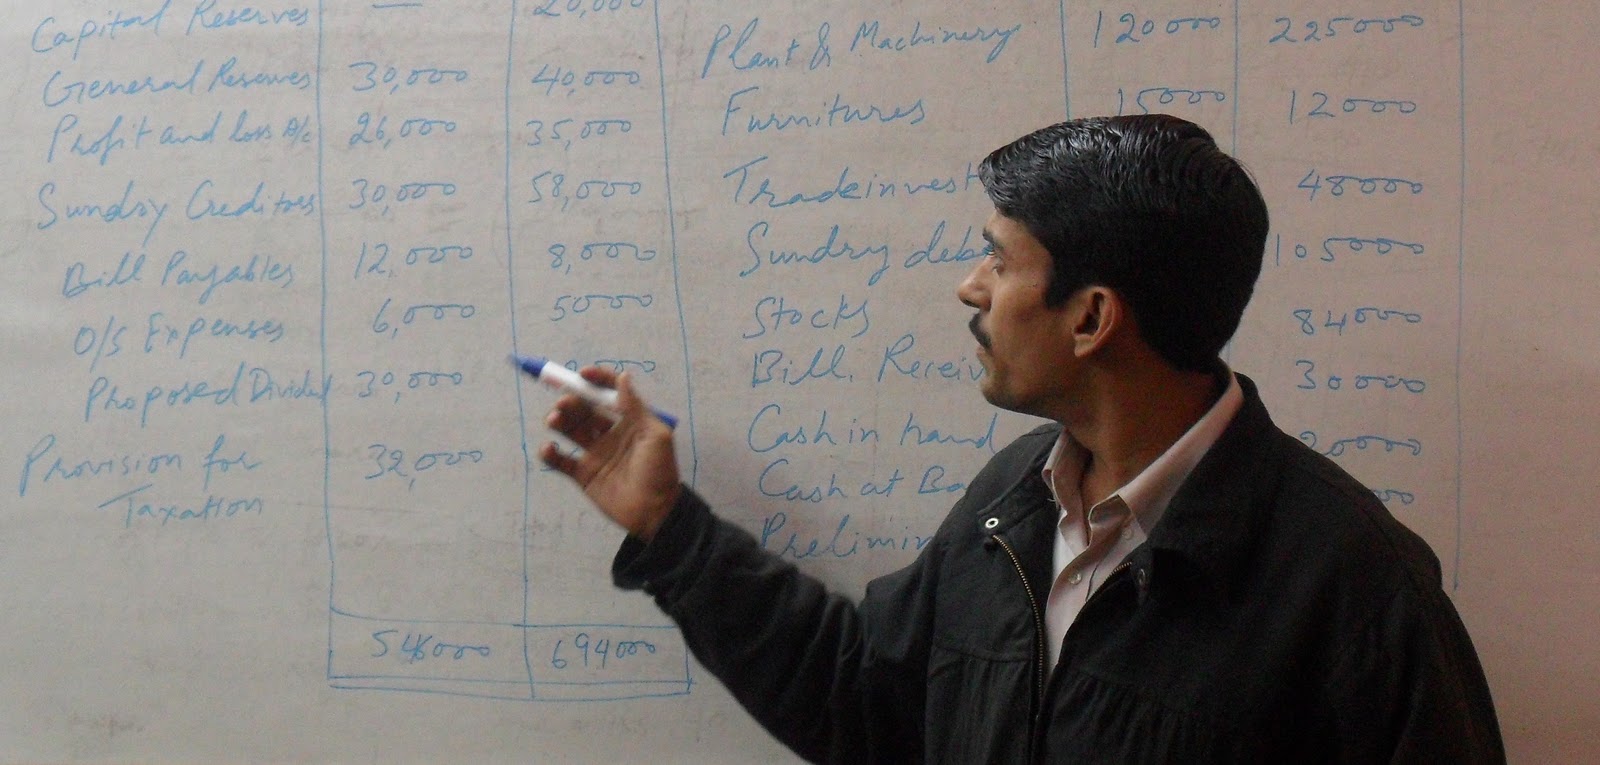 Capital Reserves — 20,000
General Reserves 30,000 40,000
Profit and loss A/c 26,000 35,000
Sundry Creditors 30,000 58,000
Bill Payables 12,000 8,000
O/S Expenses 6,000 5000
Proposed 30,000
Provision for 32,000
Taxation
546000 694000
Plant & Machinery 120000 225000
Furnitures 15000 12000
Trade invest 48000
Sundry deb 105000
Stocks 84000
Bill. Receiv 30000
Cash in hand
Cash at Ba
Prelimin